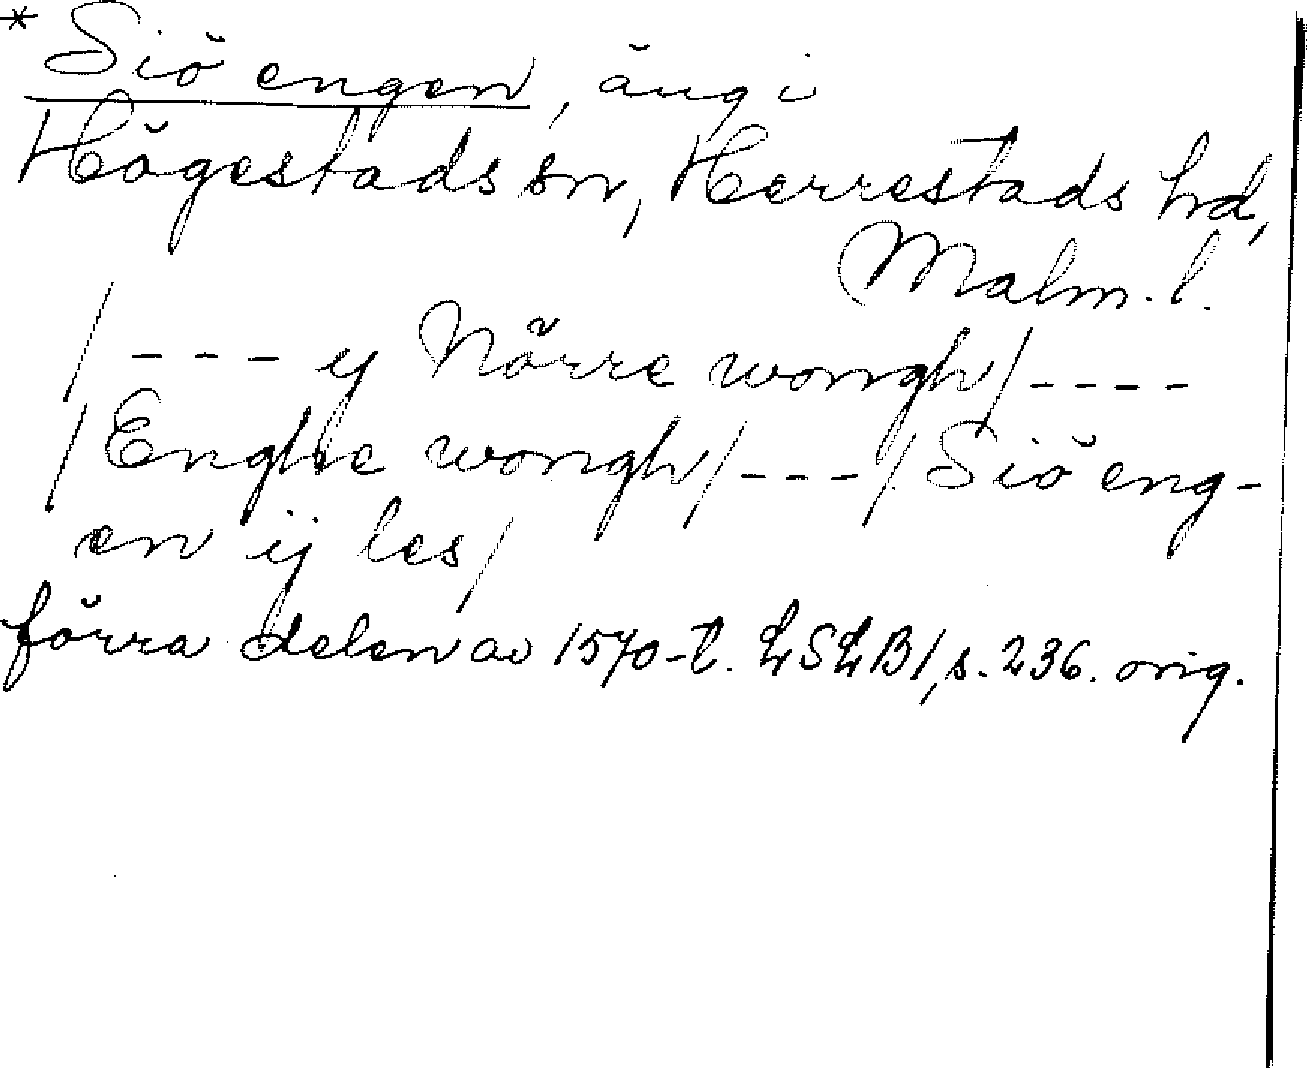 * Siö engen, äng i
Högestads sn, Herrestads hd,
Malm. l.
/ - - - ij Nörre wongh / - - - -
/ Enghe wongh / - - - / Siö eng-
en ij les /
förra delen av 1570-t. LSLB 1, s. 236. orig.